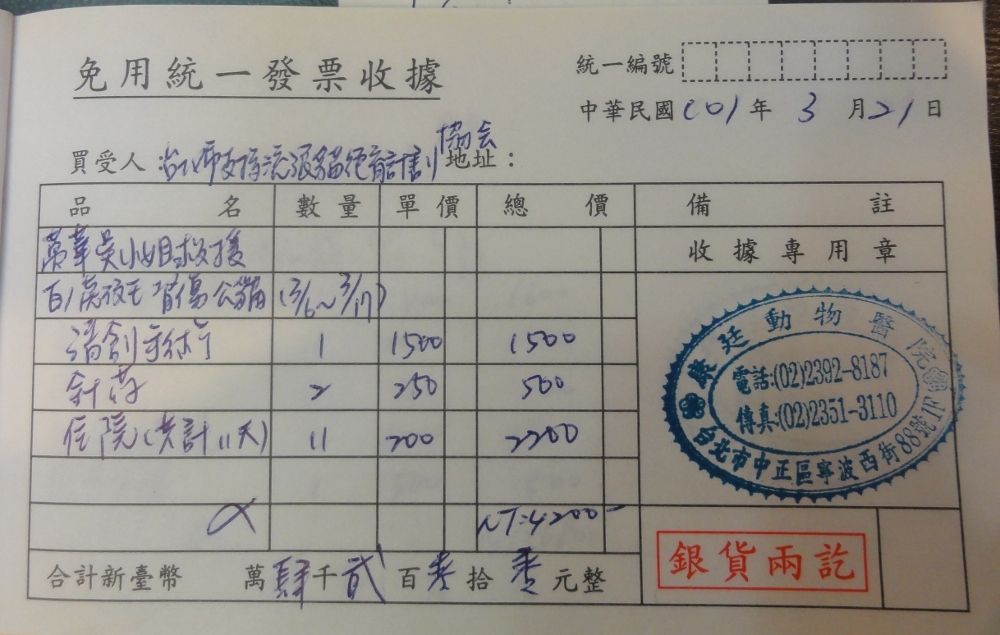 免用統一發票收據
統一編號
中華民國101年3月21日
買受人 台北市支持流浪貓絕育計劃協会 地址：
品名 數量 單價 總價 備註
萬華吳小姐救援 收據專用章
背傷公貓(3/6~3/17)
清創手術 1 1500 1500
針药 2 250 500
住院(共計11天) 11 200 2200
NT:4200-
合計新臺幣 萬肆千貳百零拾零元整
康廷動物醫院
電話:(02)2392-8187
傳真:(02)2351-3110
台北市中正區寧波西街88號1F
銀貨兩訖